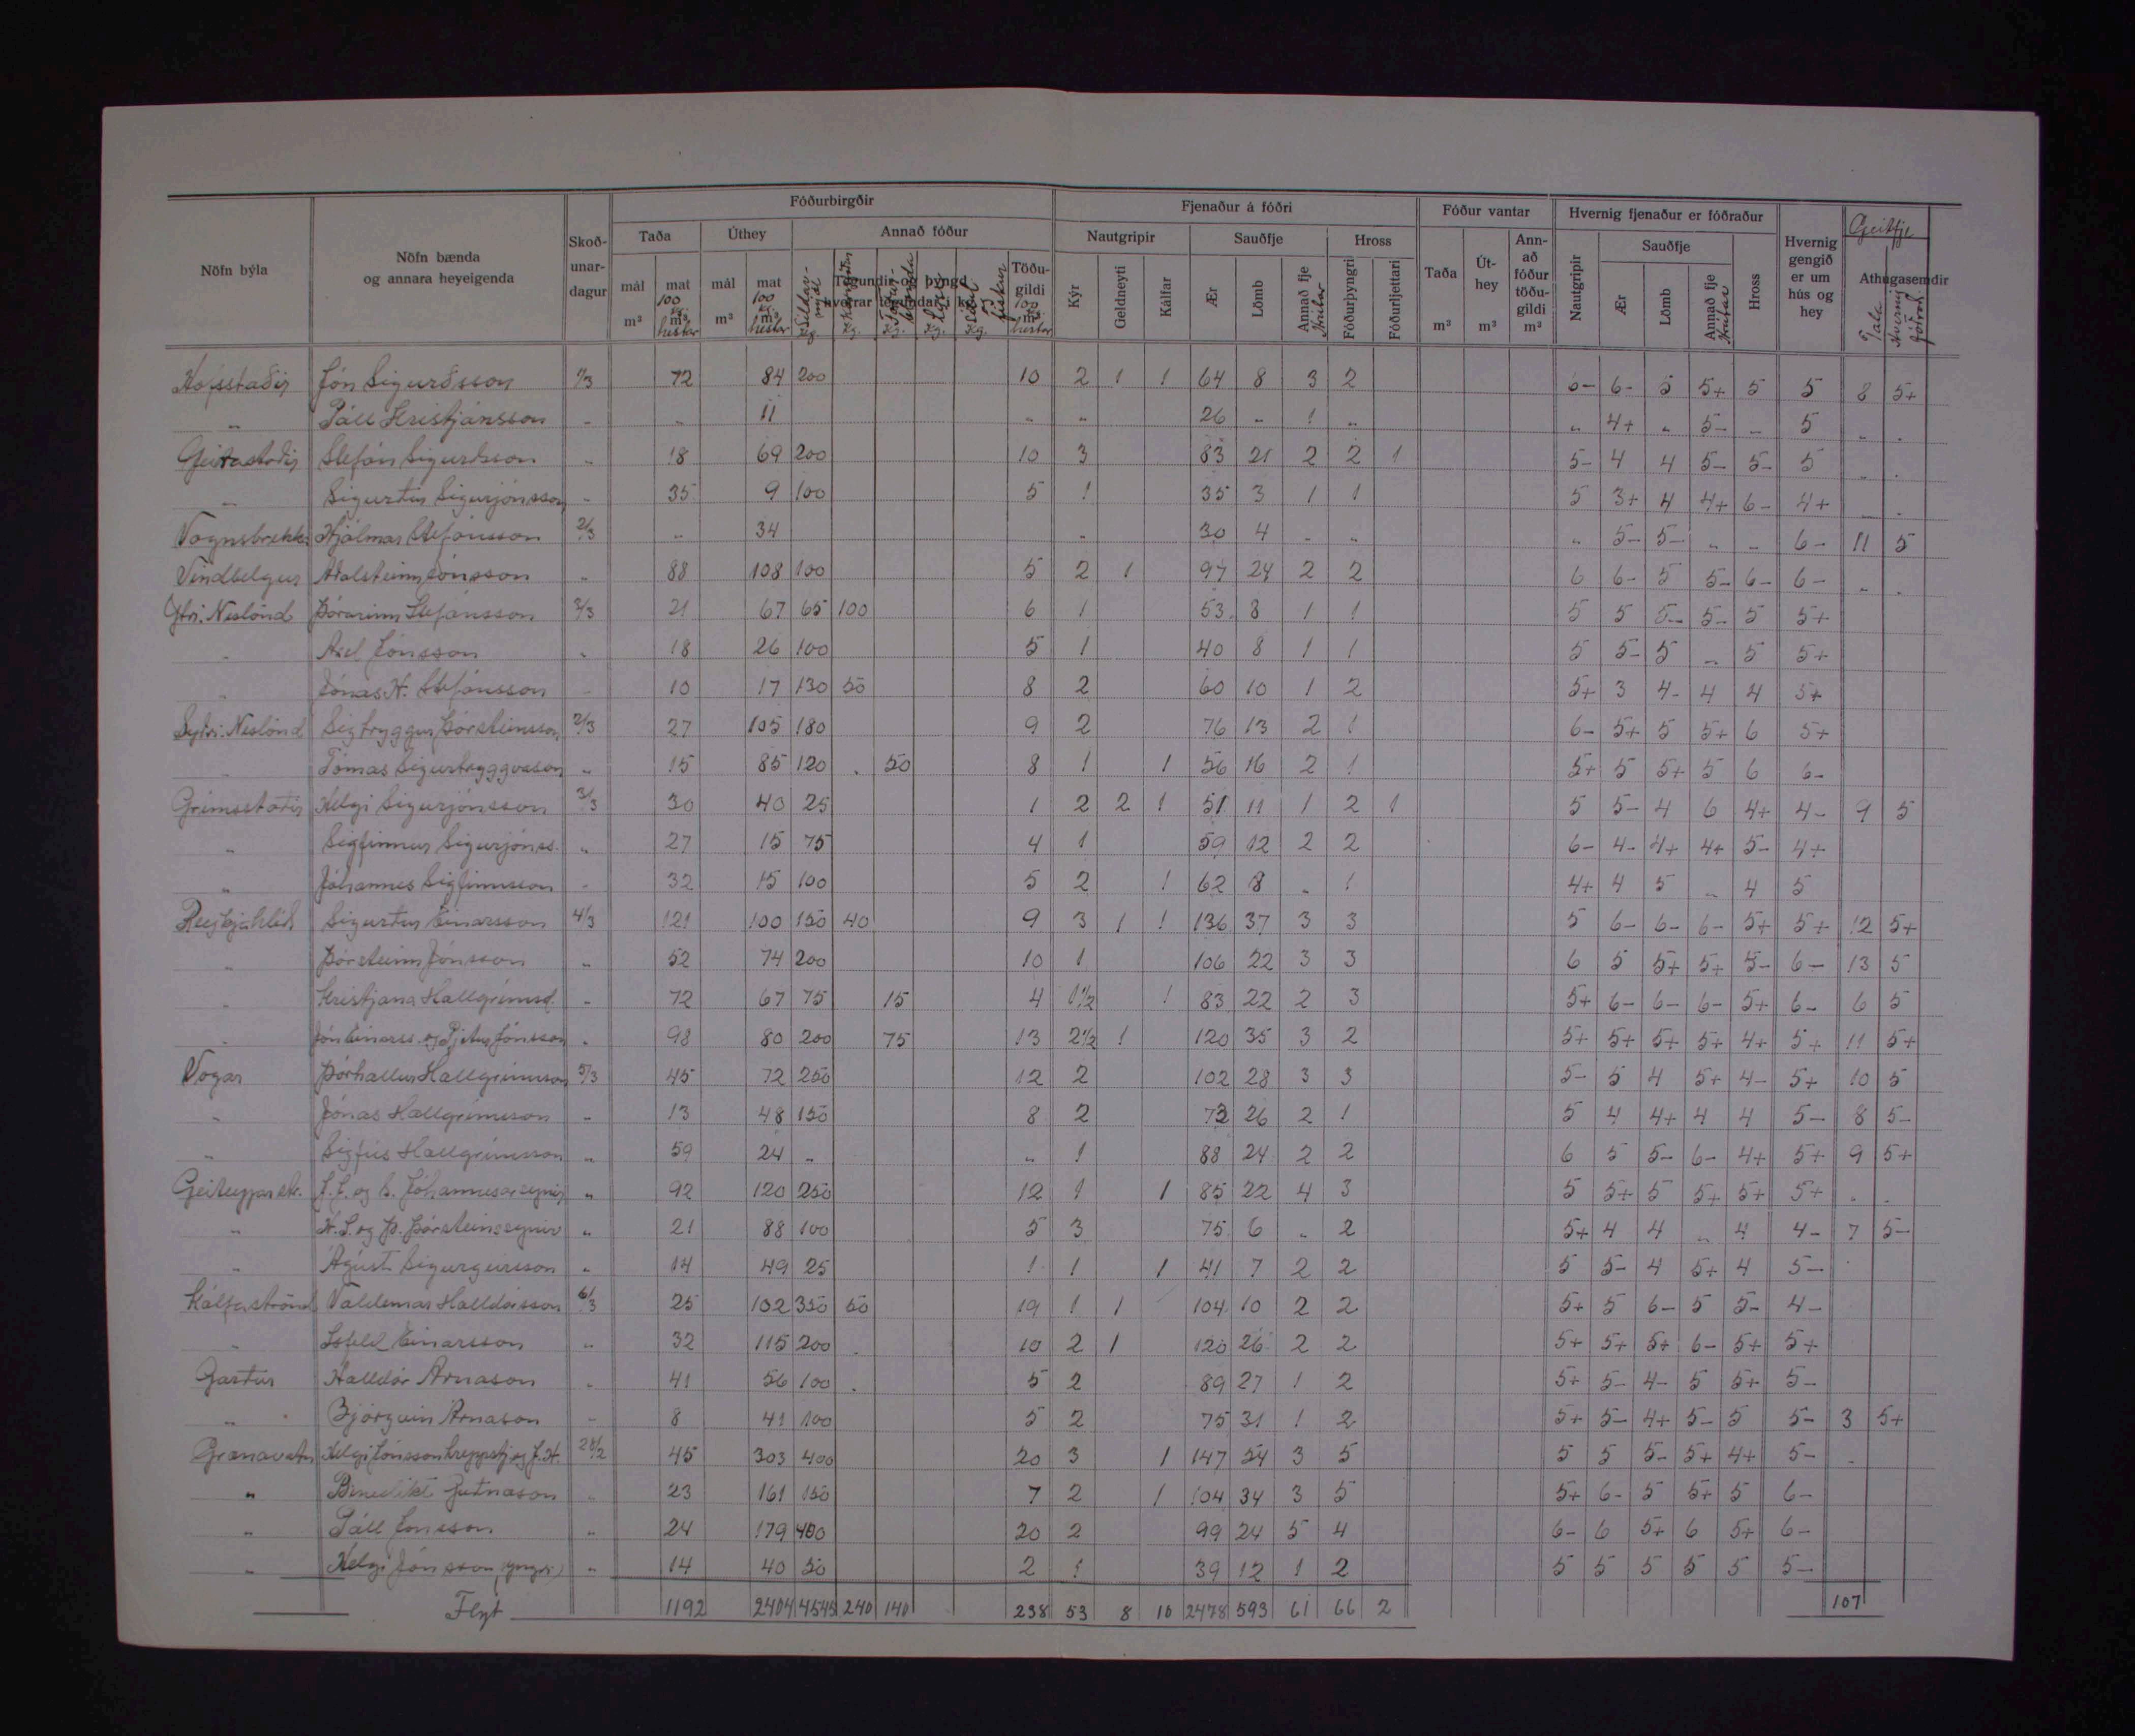 Fóðurbirgðir Fjenaður á fóðri Fóður vantar Hvernig fjenaður er fóðraður Geitfje
Nöfn býla Nöfn bænda og annara heyeigenda Skoð-unar-dagur Taða Úthey Annað fóður Nautgripir Sauðfje Hross Taða Út-hey Ann-að fóður töðu-gildi m³ Nautgripir Sauðfje Hross Hvernig gengið er um hús og hey Athugasemdir
mál m³ mat 100 kg m³ hestar mál m³ mat 100 kg m³ hestar Tegundir og þyngd hverrar tegundar í kg. Síldar-mjöl kg. kg. kg. kg. kg. Töðu-gildi 100 m³ hestar Kýr Geldneyti Kálfar Ær Lömb Annað fje Hrútar Fóðurþyngri Fóðurljettari m³ m³ Ær Lömb Annað fje Hrútar Tala Hvernig fóðrað
Hofsstaðir Jón Sigurðsson 1/3 72 84 200 10 2 1 1 64 8 3 2 6- 6- 5 5+ 5 5 8 5+
„ Páll Kristjánsson - „ 11 „ „ 26 „ 1 „ „ 4+ „ 5- „ 5 „ .
Geirastaðir Stefán Sigurðsson „ 18 69 200 10 3 83 21 2 2 1 5- 4 4 5- 5- 5 „ .
„ Sigurður Sigurjónsson - 35 9 100 5 1 35 3 1 1 5 3+ 4 4+ 6- 4+ „ .
Vagnsbrekka Hjálmar Stefánsson 2/3 „ 34 „ 30 4 „ „ „ 5- 5- „ „ 6- 11 5
Vindbelgur Aðalsteinn Jónsson „ 88 108 100 5 2 1 97 24 2 2 6 6- 5 5- 6- 6- „ .
Ytri-Neslönd Þórarinn Stefánsson 2/3 21 67 65 100 6 1 53 8 1 1 5 5 5- 5- 5 5+
„ Axel Jónsson „ 18 26 100 5 1 40 8 1 1 5 5- 5 „ 5 5+
„ Jónas H. Stefánsson - 10 17 130 50 8 2 60 10 1 2 5+ 3 4- 4 4 5+
Syðri-Neslönd Sigtryggur Þórsteinsson 2/3 27 105 180 9 2 76 13 2 1 6- 5+ 5 5+ 6 5+
„ Tómas Sigurtryggvason „ 15 85 120 . 50 8 1 1 56 16 2 1 5+ 5 5+ 5 6 6-
Grímsstaðir Helgi Sigurjónsson 3/3 30 40 25 1 2 2 1 51 11 1 2 1 5 5- 4 6 4+ 4- 9 5
„ Sigfinnur Sigurjónss. „ 27 15 75 4 1 59 12 2 2 6- 4- 4+ 4+ 5- 4+
„ Jóhannes Sigfinnsson - 32 15 100 5 2 1 62 8 „ 1 4+ 4 5 „ 4 5
Reykjahlíð Sigurður Einarsson 4/3 121 100 150 40 9 3 1 1 136 37 3 3 5 6- 6- 6- 5+ 5+ 12 5+
„ Þórsteinn Jónsson „ 52 74 200 10 1 106 22 3 3 6 5 5+ 5+ 5- 6- 13 5
„ Kristjana Hallgrímsd. - 72 67 75 15 4 1½ 1 83 22 2 3 5+ 6- 6- 6- 5+ 6- 6 5
„ Jón Einarss. og Pjetur Jónsson „ 98 80 200 75 13 2½ 1 120 35 3 2 5+ 5+ 5+ 5+ 4+ 5+ 11 5+
Vogar Þórhallur Hallgrímsson 5/3 45 72 250 12 2 102 28 3 3 5- 5 4 5+ 4- 5+ 10 5
„ Jónas Hallgrímsson „ 13 48 150 8 2 73 26 2 1 5 4 4+ 4 4 5- 8 5-
„ Sigfús Hallgrímsson „ 59 24 „ „ 1 88 24 2 2 6 5 5- 6- 4+ 5+ 9 5+
Geiteyjarstr. J. J. og S. Jóhannessynir „ 92 120 250 12 1 1 85 22 4 3 5 5+ 5 5+ 5+ 5+ „ „
„ H. S. og Þ. Þórsteinssynir „ 21 88 100 5 3 75 6 „ 2 5+ 4 4 „ 4 4- 7 5-
„ Ágúst Sigurgeirsson „ 14 49 25 1 1 1 41 7 2 2 5 5- 4 5+ 4 5-
Kálfaströnd Valdemar Halldórsson 6/3 25 102 350 50 19 1 1 104 10 2 2 5+ 5 6- 5 5- 4-
„ Ísfeld Einarsson „ 32 115 200 10 2 1 120 26 2 2 5+ 5+ 5+ 6- 5+ 5+
Garður Halldór Árnason „ 41 56 100 5 2 89 27 1 2 5+ 5- 4- 5 5+ 5-
„ Björgvin Árnason - 8 41 100 5 2 75 31 1 2 5+ 5- 4+ 5- 5 5- 3 5+
Grænavatn Helgi Jónsson hreppstj. og J. H. 28/2 45 303 400 20 3 1 147 54 3 5 5 5 5- 5+ 4+ 5-
„ Benedikt Guðnason „ 23 161 150 7 2 1 104 34 3 5 5+ 6- 5 5+ 5 6-
„ Páll Jónsson „ 24 179 400 20 2 99 24 5 4 6- 6 5+ 6 5+ 6-
„ Helgi Jónsson (yngri) „ 14 40 50 2 1 39 12 1 2 5 5 5 5 5 5-
Flyt 1192 2404 4545 240 140 238 53 8 10 2478 593 61 66 2 107